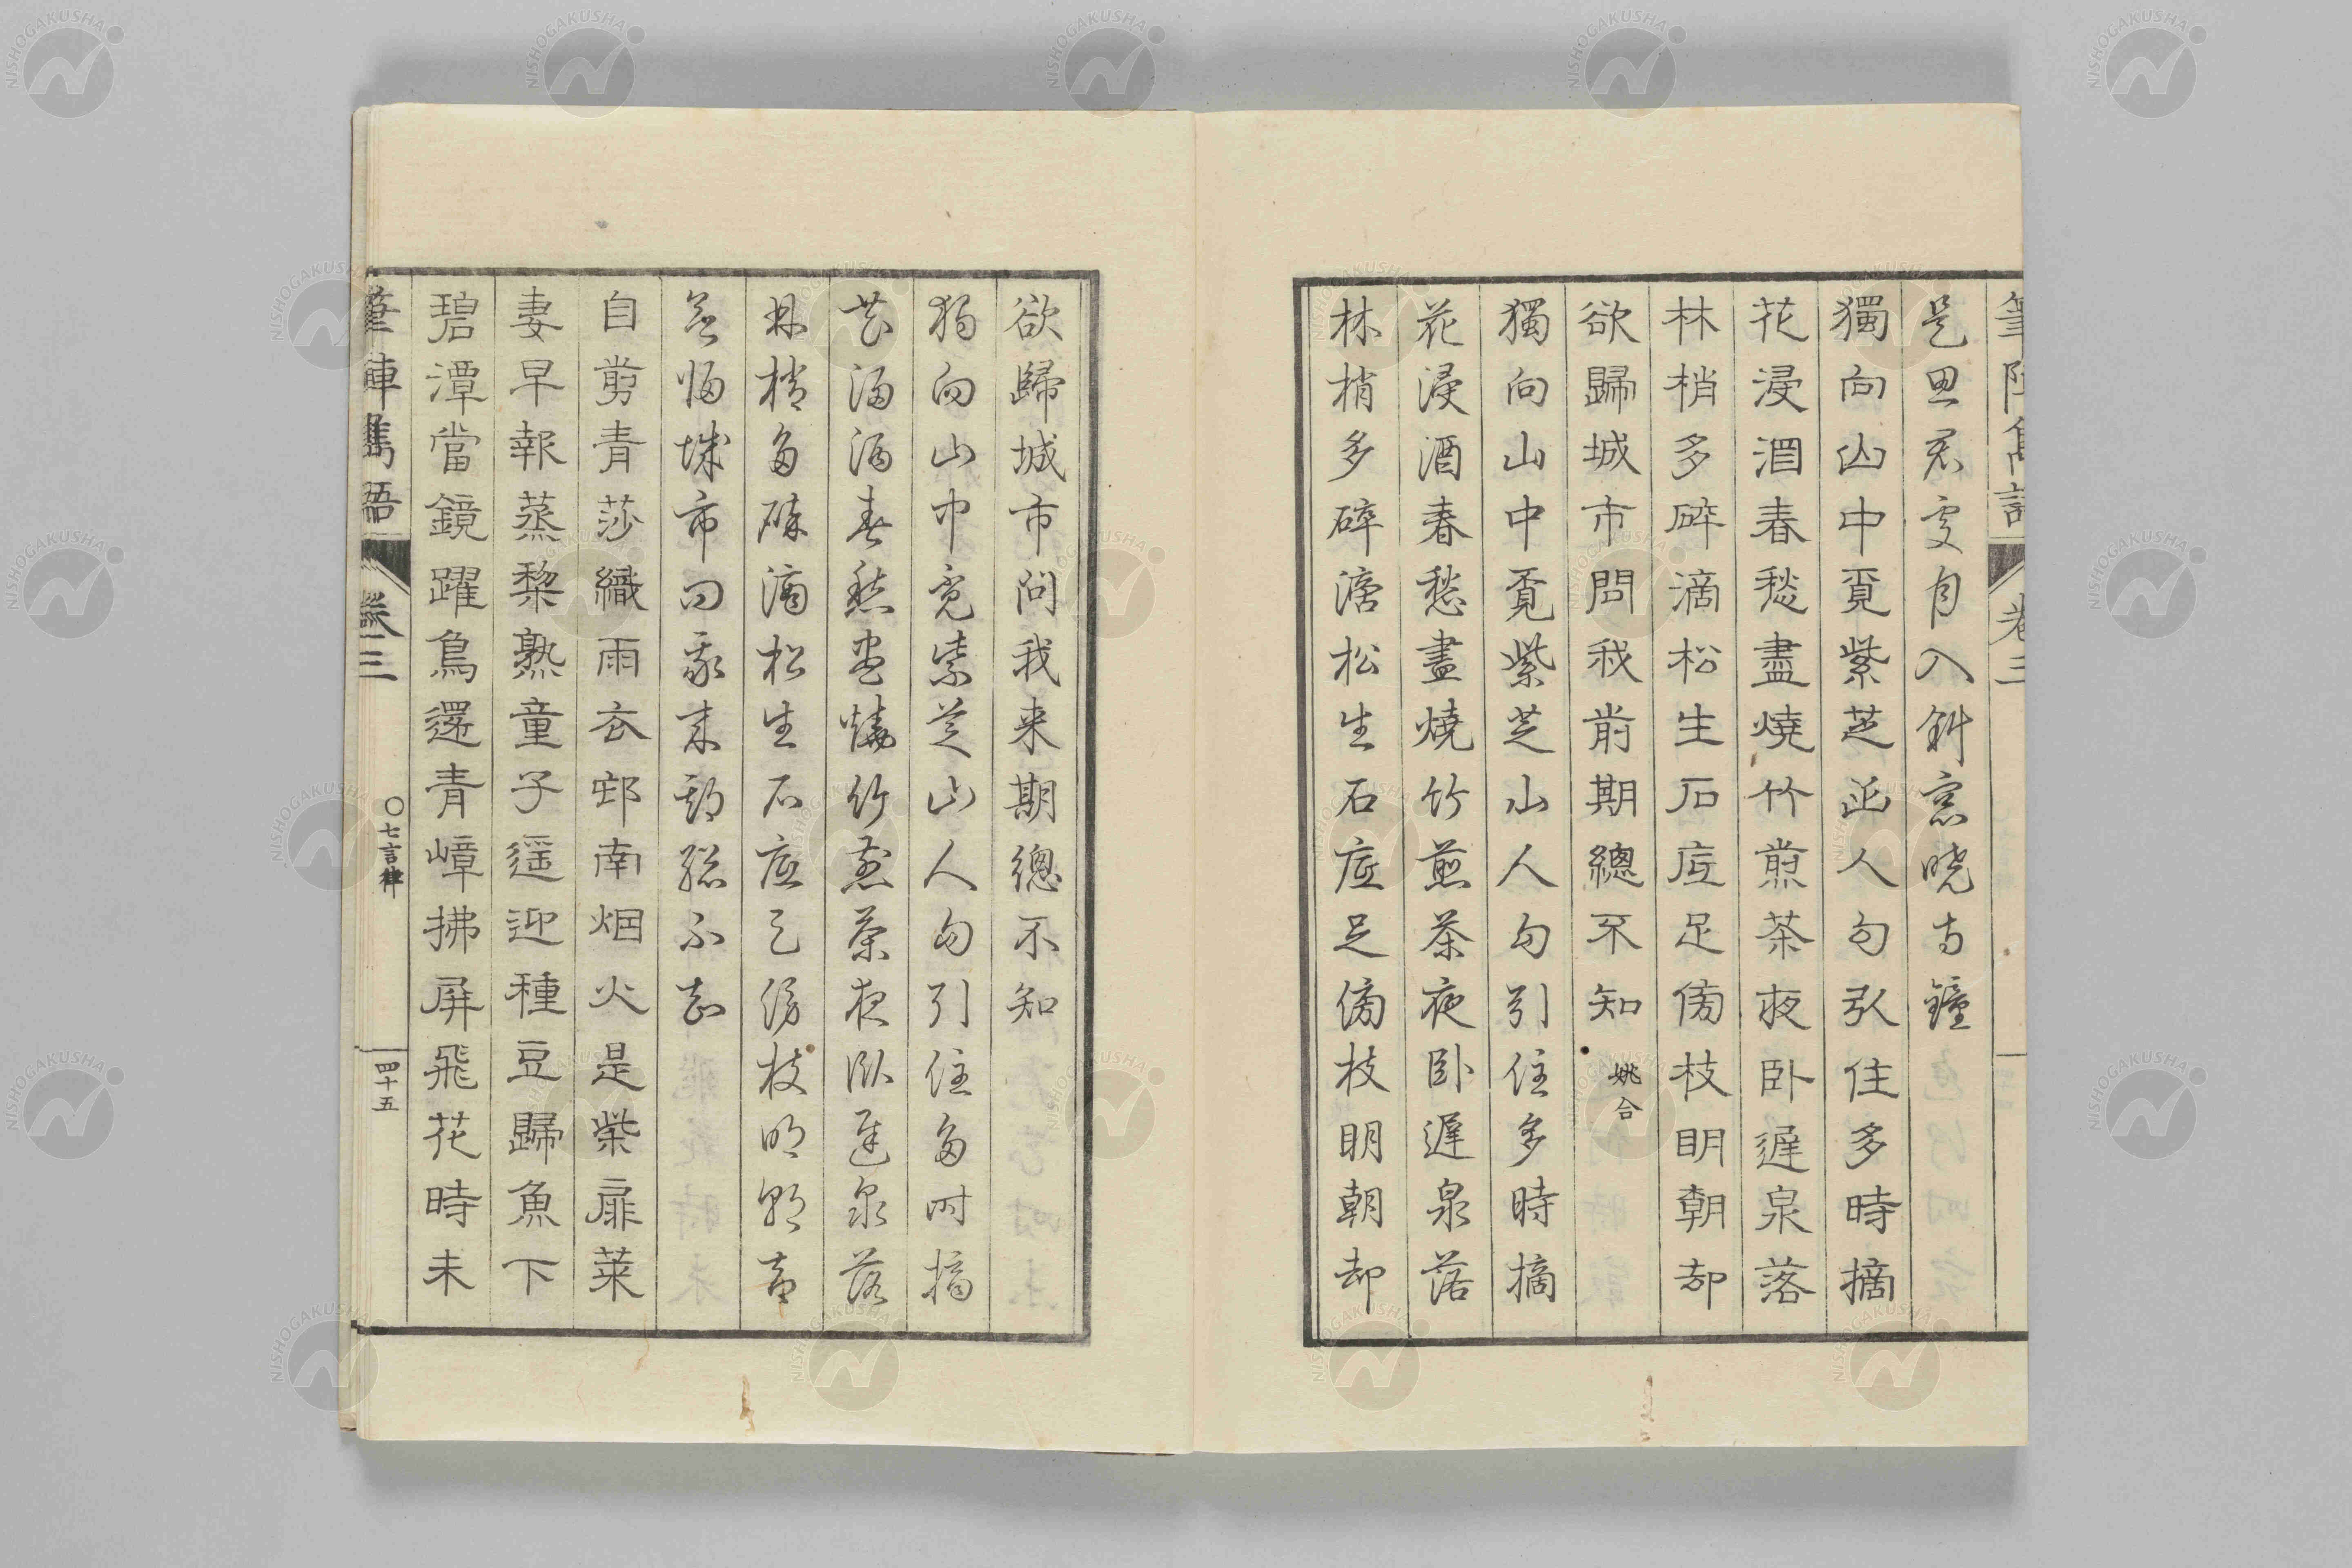 筆陣雋語 卷三
是思君處月入斜窓曉寺鐘
獨向山中覓紫芝山人勾引住多時摘
花浸酒春愁盡燒竹煎茶夜臥遲泉落
林梢多碎滴松生石底足傍枝明朝却
欲歸城市問我前期總不知
姚合
獨向山中覓紫芝山人勾引住多時摘
花浸酒春愁盡燒竹煎茶夜卧遲泉落
林梢多碎滴松生石底足傍枝明朝却
欲歸城市問我来期總不知
獨向山中覓紫芝山人勾引住多時摘
花浸酒春愁盡燒竹煎茶夜臥遲泉落
林梢多碎滴松生石底足傍枝明朝却
欲歸城市問我来期總不知
自剪青莎織雨衣邨南烟火是柴扉萊
妻早報蒸黎熟童子遥迎種豆歸魚下
碧潭當鏡躍鳥還青嶂拂屏飛花時未
筆陣雋語 卷三 〇七言律 四十五
NISHOGAKUSHA